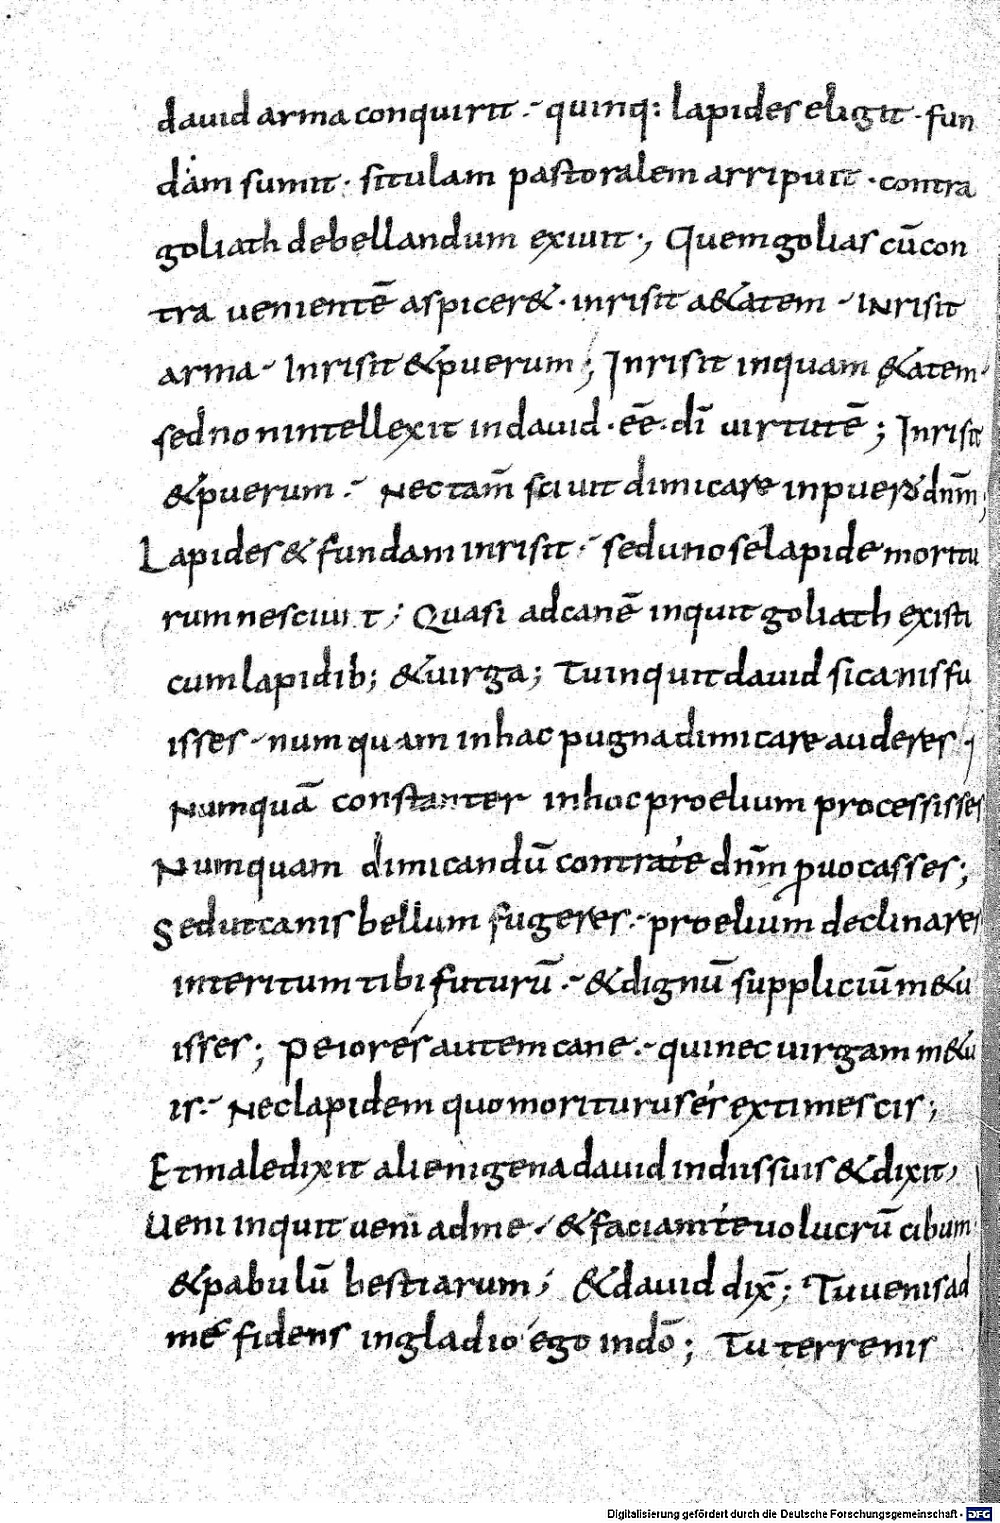 dauid arma conquirit · quinq: lapides eligit · fun
dam sumit · situlam pastoralem arripuit · contra
goliath debellandum exiuit ·, Quem golias cū con
tra uenientē aspiceret · inrisit aetatem · INrisit
arma · Inrisit & puerum ; Inrisit inquam ętatem ·
sed non intellexit in dauid · eē · dī uirtutē ; Inrisit
& puerum · Nec tam̄ sciuit dimicare in puero dn̄m ;
Lapides & fundam inrisit · sed uno se lapide moritu
rum nesciuit ; Quasi ad canē inquit goliath existi
cum lapidib; & uirga ; Tu inquit dauid si canis fu
isses · numquam in hac pugna dimicare auderes ;
Numquā constanter in hoc proelium processisses
Numquam dimicandū contra te dn̄m ꝓuocasses ;
Sed ut canis bellum fugeres · proelium declinares
interitum tibi futurū · & dignū suppliciū metu
isses ; Peior es autem cane · qui nec uirgam metu
is · Nec lapidem quo moriturus es extimescis ;
Et maledixit alienigena dauid in diis suis & dixit ,
Ueni inquit ueni ad me · & faciam te uolucrū cibum
& pabulū bestiarum ; & dauid dix̄ ; Tu uenis ad
me fidens in gladio ego in dō ; Tu terrenis
Digitalisierung gefördert durch die Deutsche Forschungsgemeinschaft - DFG